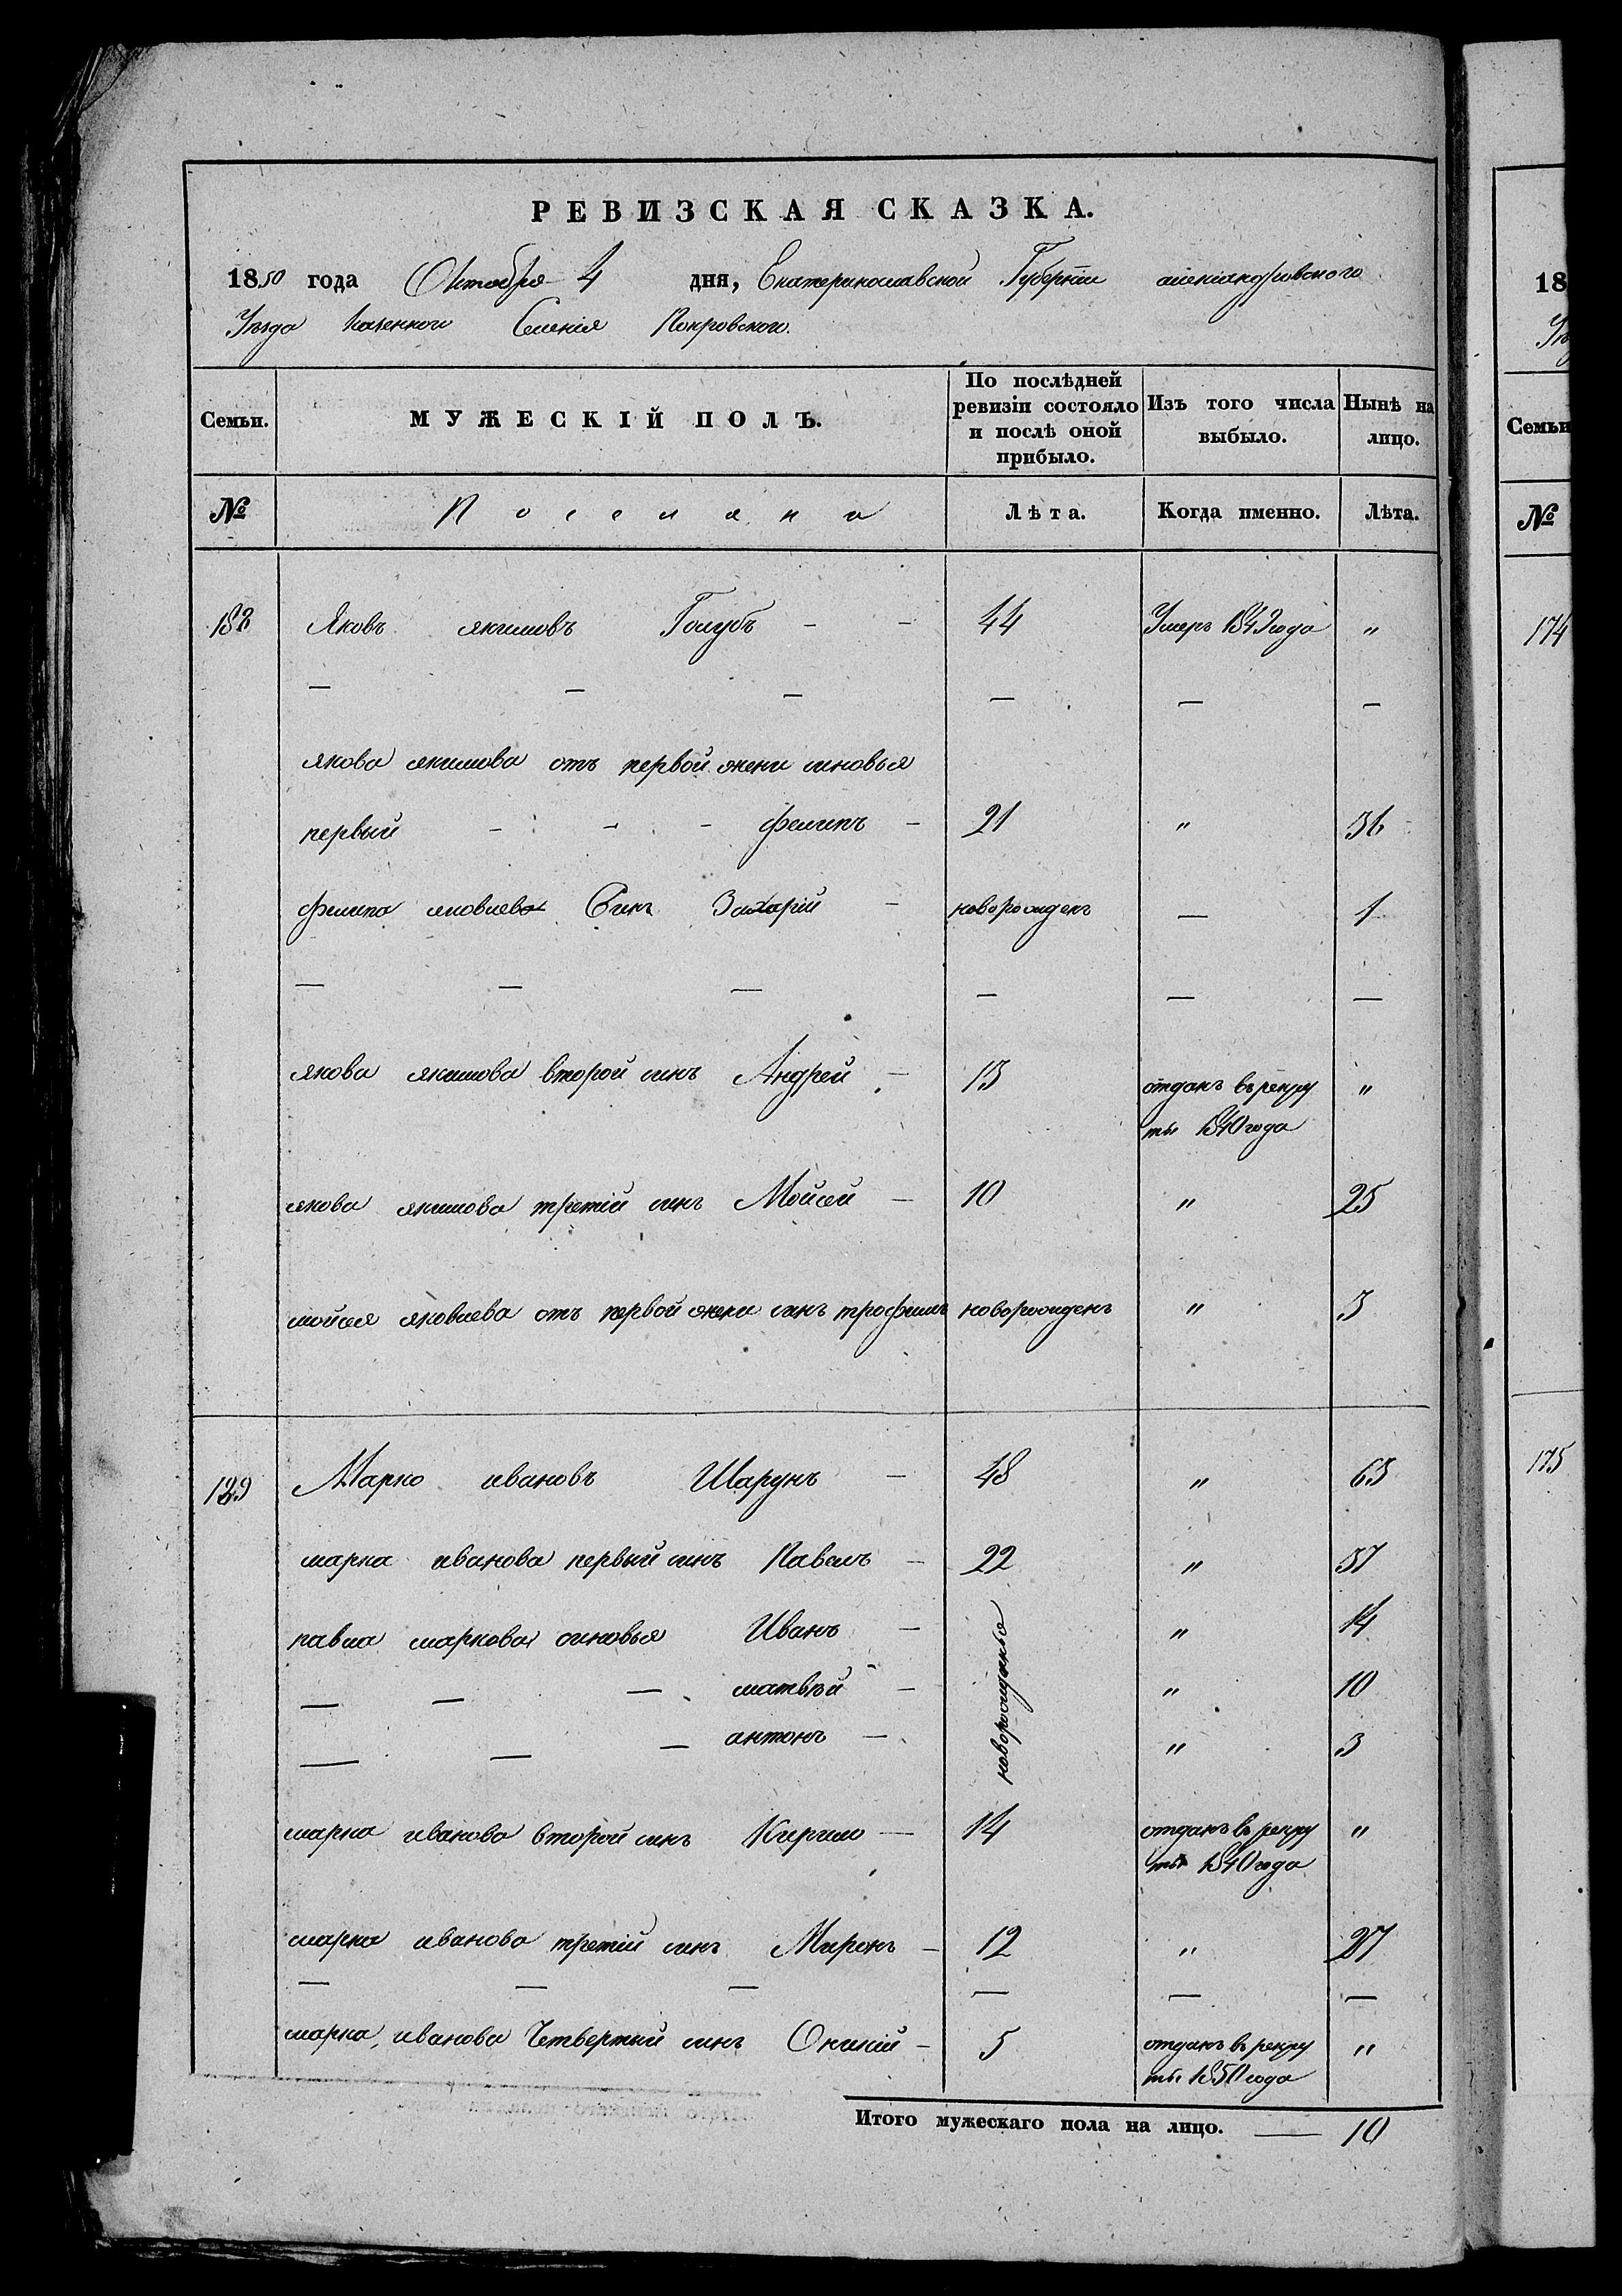 РЕВИЗСКАЯ СКАЗКА.
1850 года Октября 4 дня, Екатеринославской Губерніи александровского
Уезда Казенного Селенія Покровского.
Семьи. МУЖЕСКІЙ ПОЛЪ. По послѣдней ревизіи состояло и послѣ оной прибыло. Изъ того числа выбыло. Нынѣ на лицо.
№ Поселяна Лѣта. Когда именно. Лѣта.
Яковъ якимовъ Голубъ - - 44 Умеръ 1849 года "
— — — — — —
якова якимова отъ первой жени синовья
первый - - - филипъ - 21 " 36
филипа яковлева Синъ Захарій - новорожденъ — 1
— — — — — —
якова якимова второй синъ Андрей - 15 отданъ въ рекру "
ты 1840 года
якова якимова третій синъ Мойсей - 10 " 25
мойсея яковлева отъ первой жени синъ трофимъ новорожденъ " 3
129 Марко ивановъ Шарунъ - 48 " 63
марка иванова первый синъ Павелъ - 22 " 37
павла маркова синовья Иванъ - новорожденные " 14
— — — матвѣй - " 10
— — — антонъ - " 3
марка иванова второй синъ Кирило - 14 отданъ въ рекру "
ты 1840 года
марка иванова третій синъ Миронъ - 12 " 27
— — — — — —
марка иванова Четвертий синъ Оникій - 5 отданъ въ рекру "
ты 1850 года
Итого мужескаго пола на лицо. — 10
18
Семьи
№
174
175